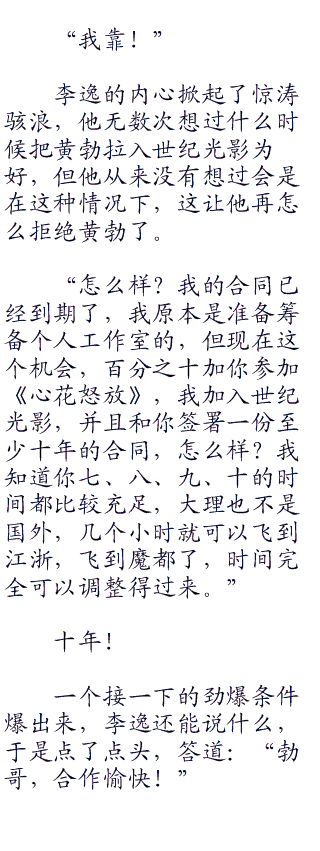 “我靠！”
李逸的内心掀起了惊涛
骇浪，他无数次想过什么时
候把黄勃拉入世纪光影为
好，但他从来没有想过会是
在这种情况下，这让他再怎
么拒绝黄勃了。
“怎么样？我的合同已
经到期了，我原本是准备筹
备个人工作室的，但现在这
个机会，百分之十加你参加
《心花怒放》，我加入世纪
光影，并且和你签署一份至
少十年的合同，怎么样？我
知道你七、八、九、十的时
间都比较充足，大理也不是
国外，几个小时就可以飞到
江浙，飞到魔都了，时间完
全可以调整得过来。”
十年！
一个接一下的劲爆条件
爆出来，李逸还能说什么，
于是点了点头，答道：“勃
哥，合作愉快！”